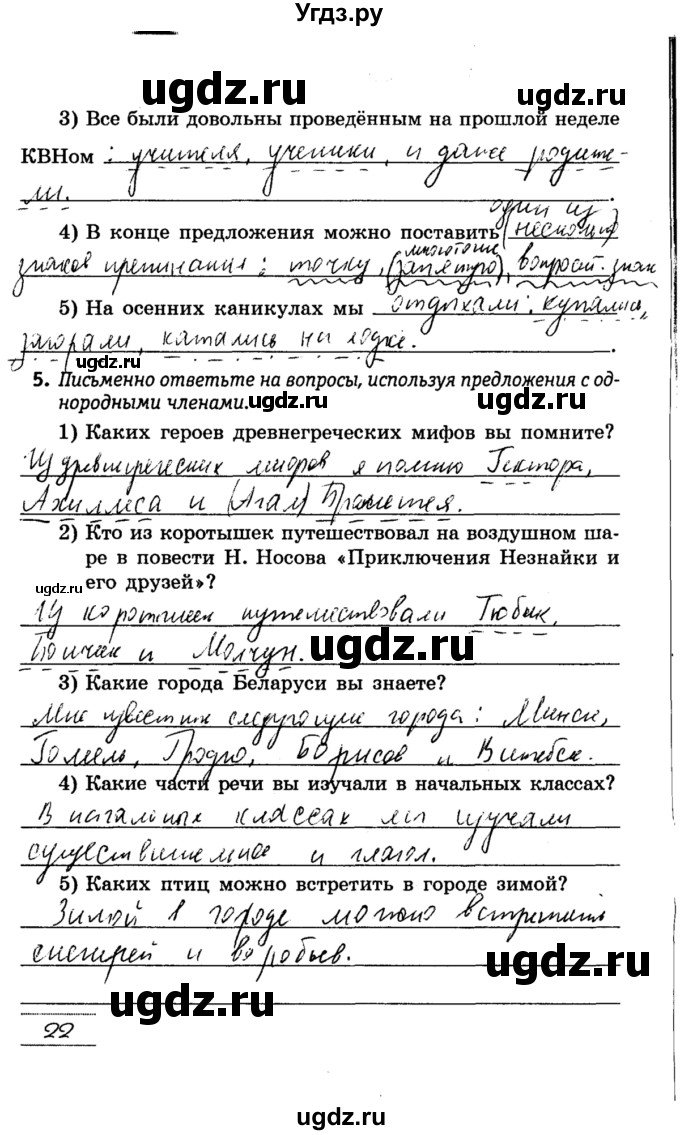 Угдз.ру
ugdz.ru
3) Все были довольны проведённым на прошлой неделе
КВНом : учителя, ученики, и даже родите-
ли.
4) В конце предложения можно поставить один из
знаков препинания: точку, (запятую), многоточие, вопросит. знак
5) На осенних каникулах мы отдыхали: купались,
загорали, катались на лодке.
ugdz.ru
5. Письменно ответьте на вопросы, используя предложения с од-
нородными членами.
ugdz.ru ugdz.ru
1) Каких героев древнегреческих мифов вы помните?
Из древнегреческих мифов я помню Гектора,
Ахиллеса и (Агам)
2) Кто из коротышек путешествовал на воздушном ша-
ре в повести Н. Носова «Приключения Незнайки и
его друзей»?
ugdz.ru ugdz.ru
Из коротышек путешествовали Тюбик,
Пончик и Молчун.
ugdz.ru
3) Какие города Беларуси вы знаете?
Мне известны следующие города: Минск,
Гомель, Гродно, Борисов и Витебск.
4) Какие части речи вы изучали в начальных классах?
В начальных классах мы изучали
существительное и глагол.
ugdz.ru ugdz.ru
5) Каких птиц можно встретить в городе зимой?
Зимой в городе можно встретить
снегирей и воробьёв.
ugdz.ru
ugdz.ru ugdz.ru
22
ugdz.ru
ugdz.ru